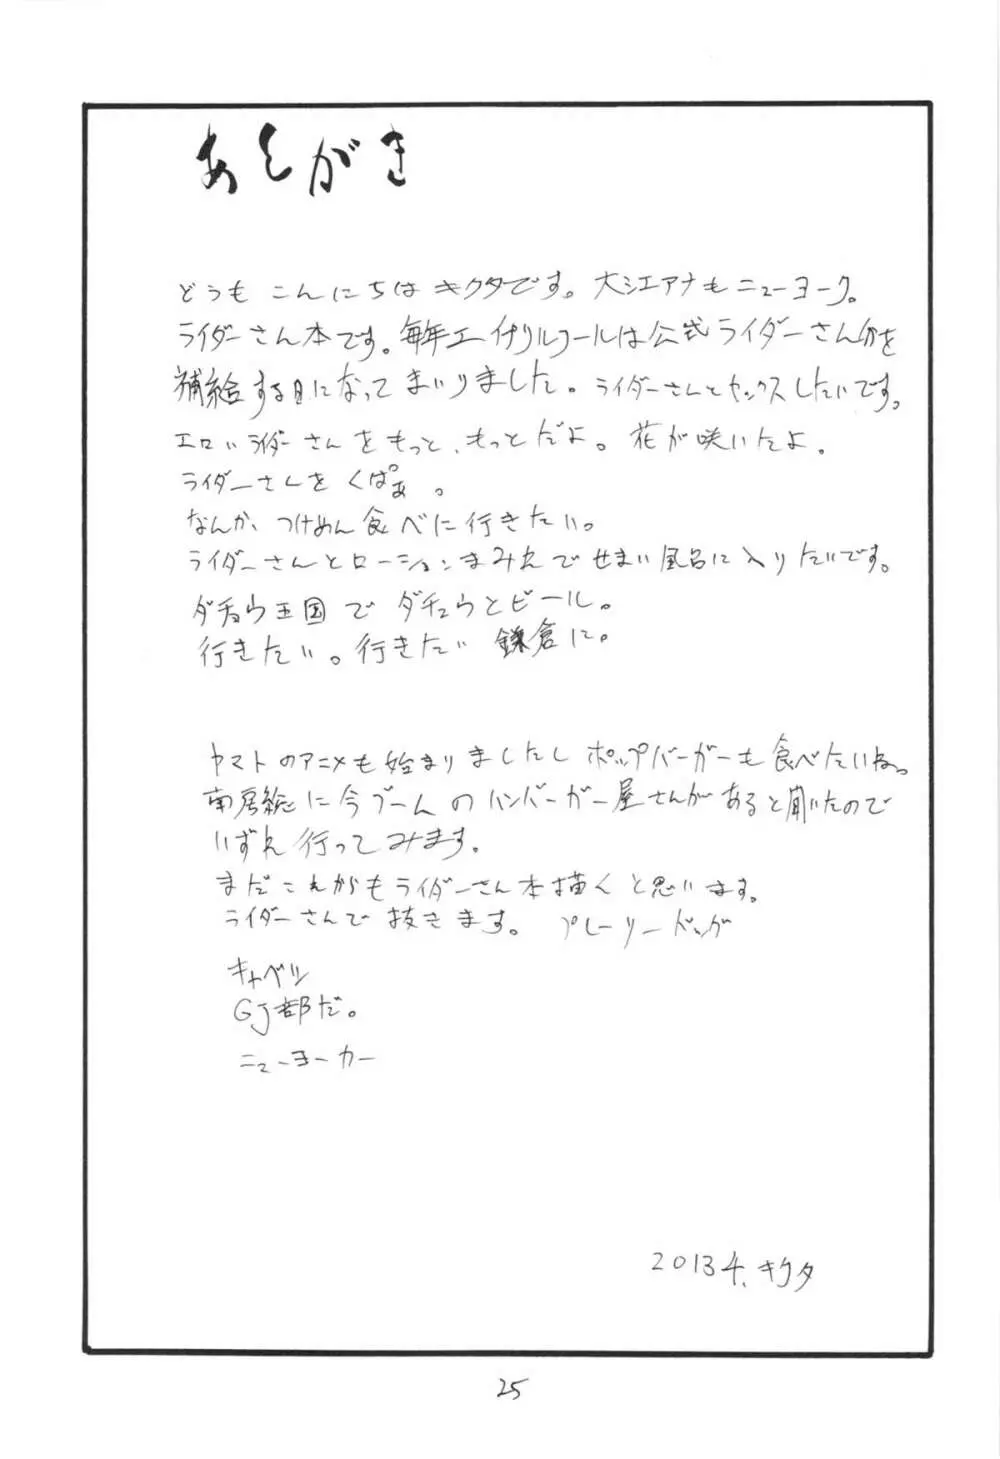 あとがき
どうも こんにちは キクタです。大江アナも ニューヨーク。
ライダーさん本です。毎年エイプリルフールは公式ライダーさん分を
補給する日になって まいりました。ライダーさんとセックスしたいです。
エロい ライダーさんをもっと、もっとだよ。花が咲いたよ。
ライダーさんを くぱぁ。
なんか、つけめん食べに行きたい。
ライダーさんとローションまみれで せまい風呂に入りたいです。
ダチョウ王国で ダチョウとビール。
行きたい。行きたい 鎌倉に。
ヤマトのアニメも始まりましたし ポップバーガーも食べたいねっ
南房総に今ブームのハンバーガー屋さんがあると聞いたので
いずれ行ってみます。
まだこれからもライダーさん本描くと思います。
ライダーさんで 抜きます。 プレーリードッグ
キャベツ
GJ部だ。
ニューヨーカー
2013 4. キクタ
25